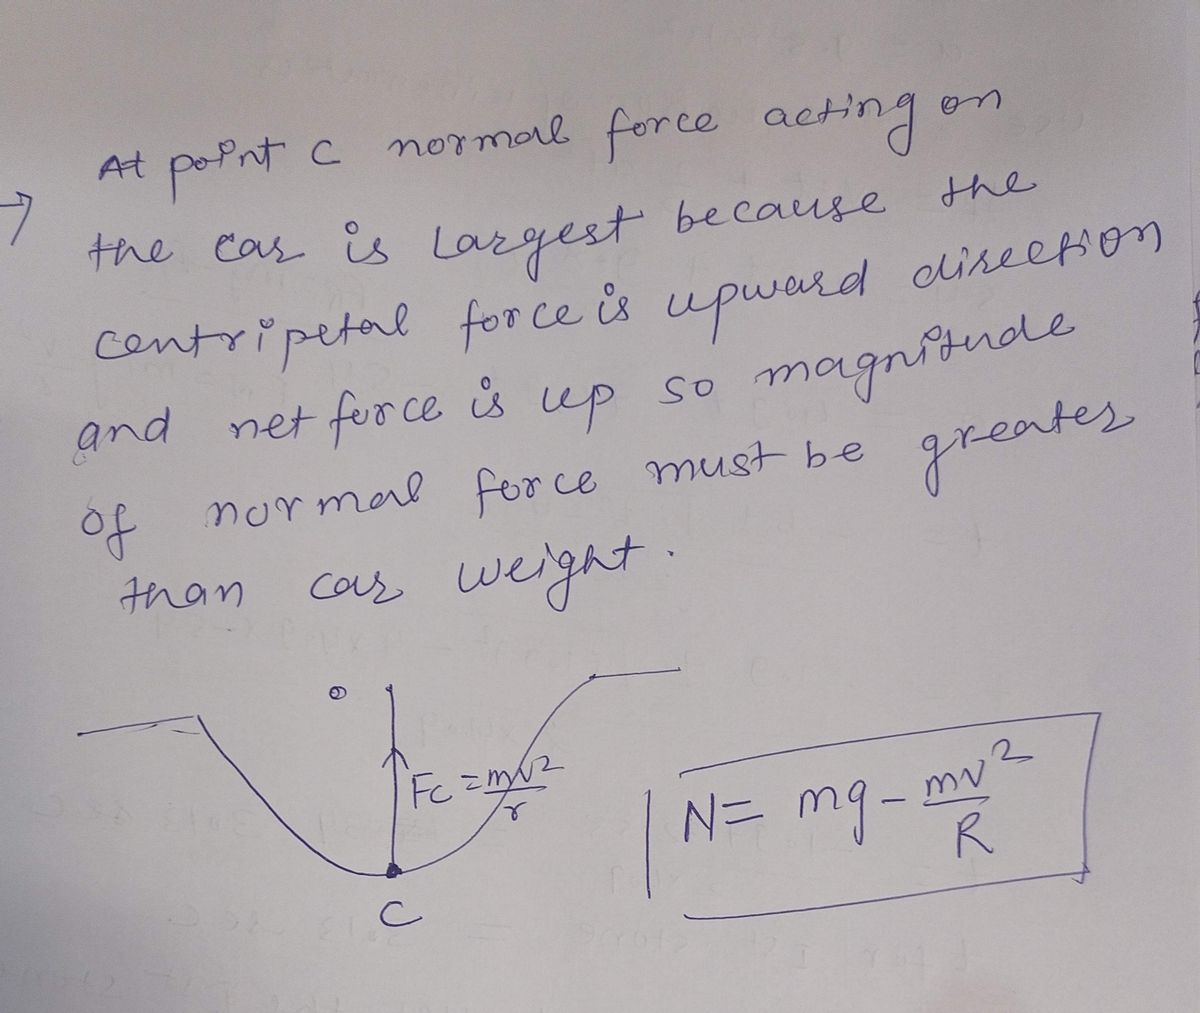 → At point C normal force acting on
the car is Largest because the
centripetal force is upward direction
and net force is up so magnitude
of normal force must be greater
than car weight.
Fc = mv²/r
C
N = mg - mv²/R